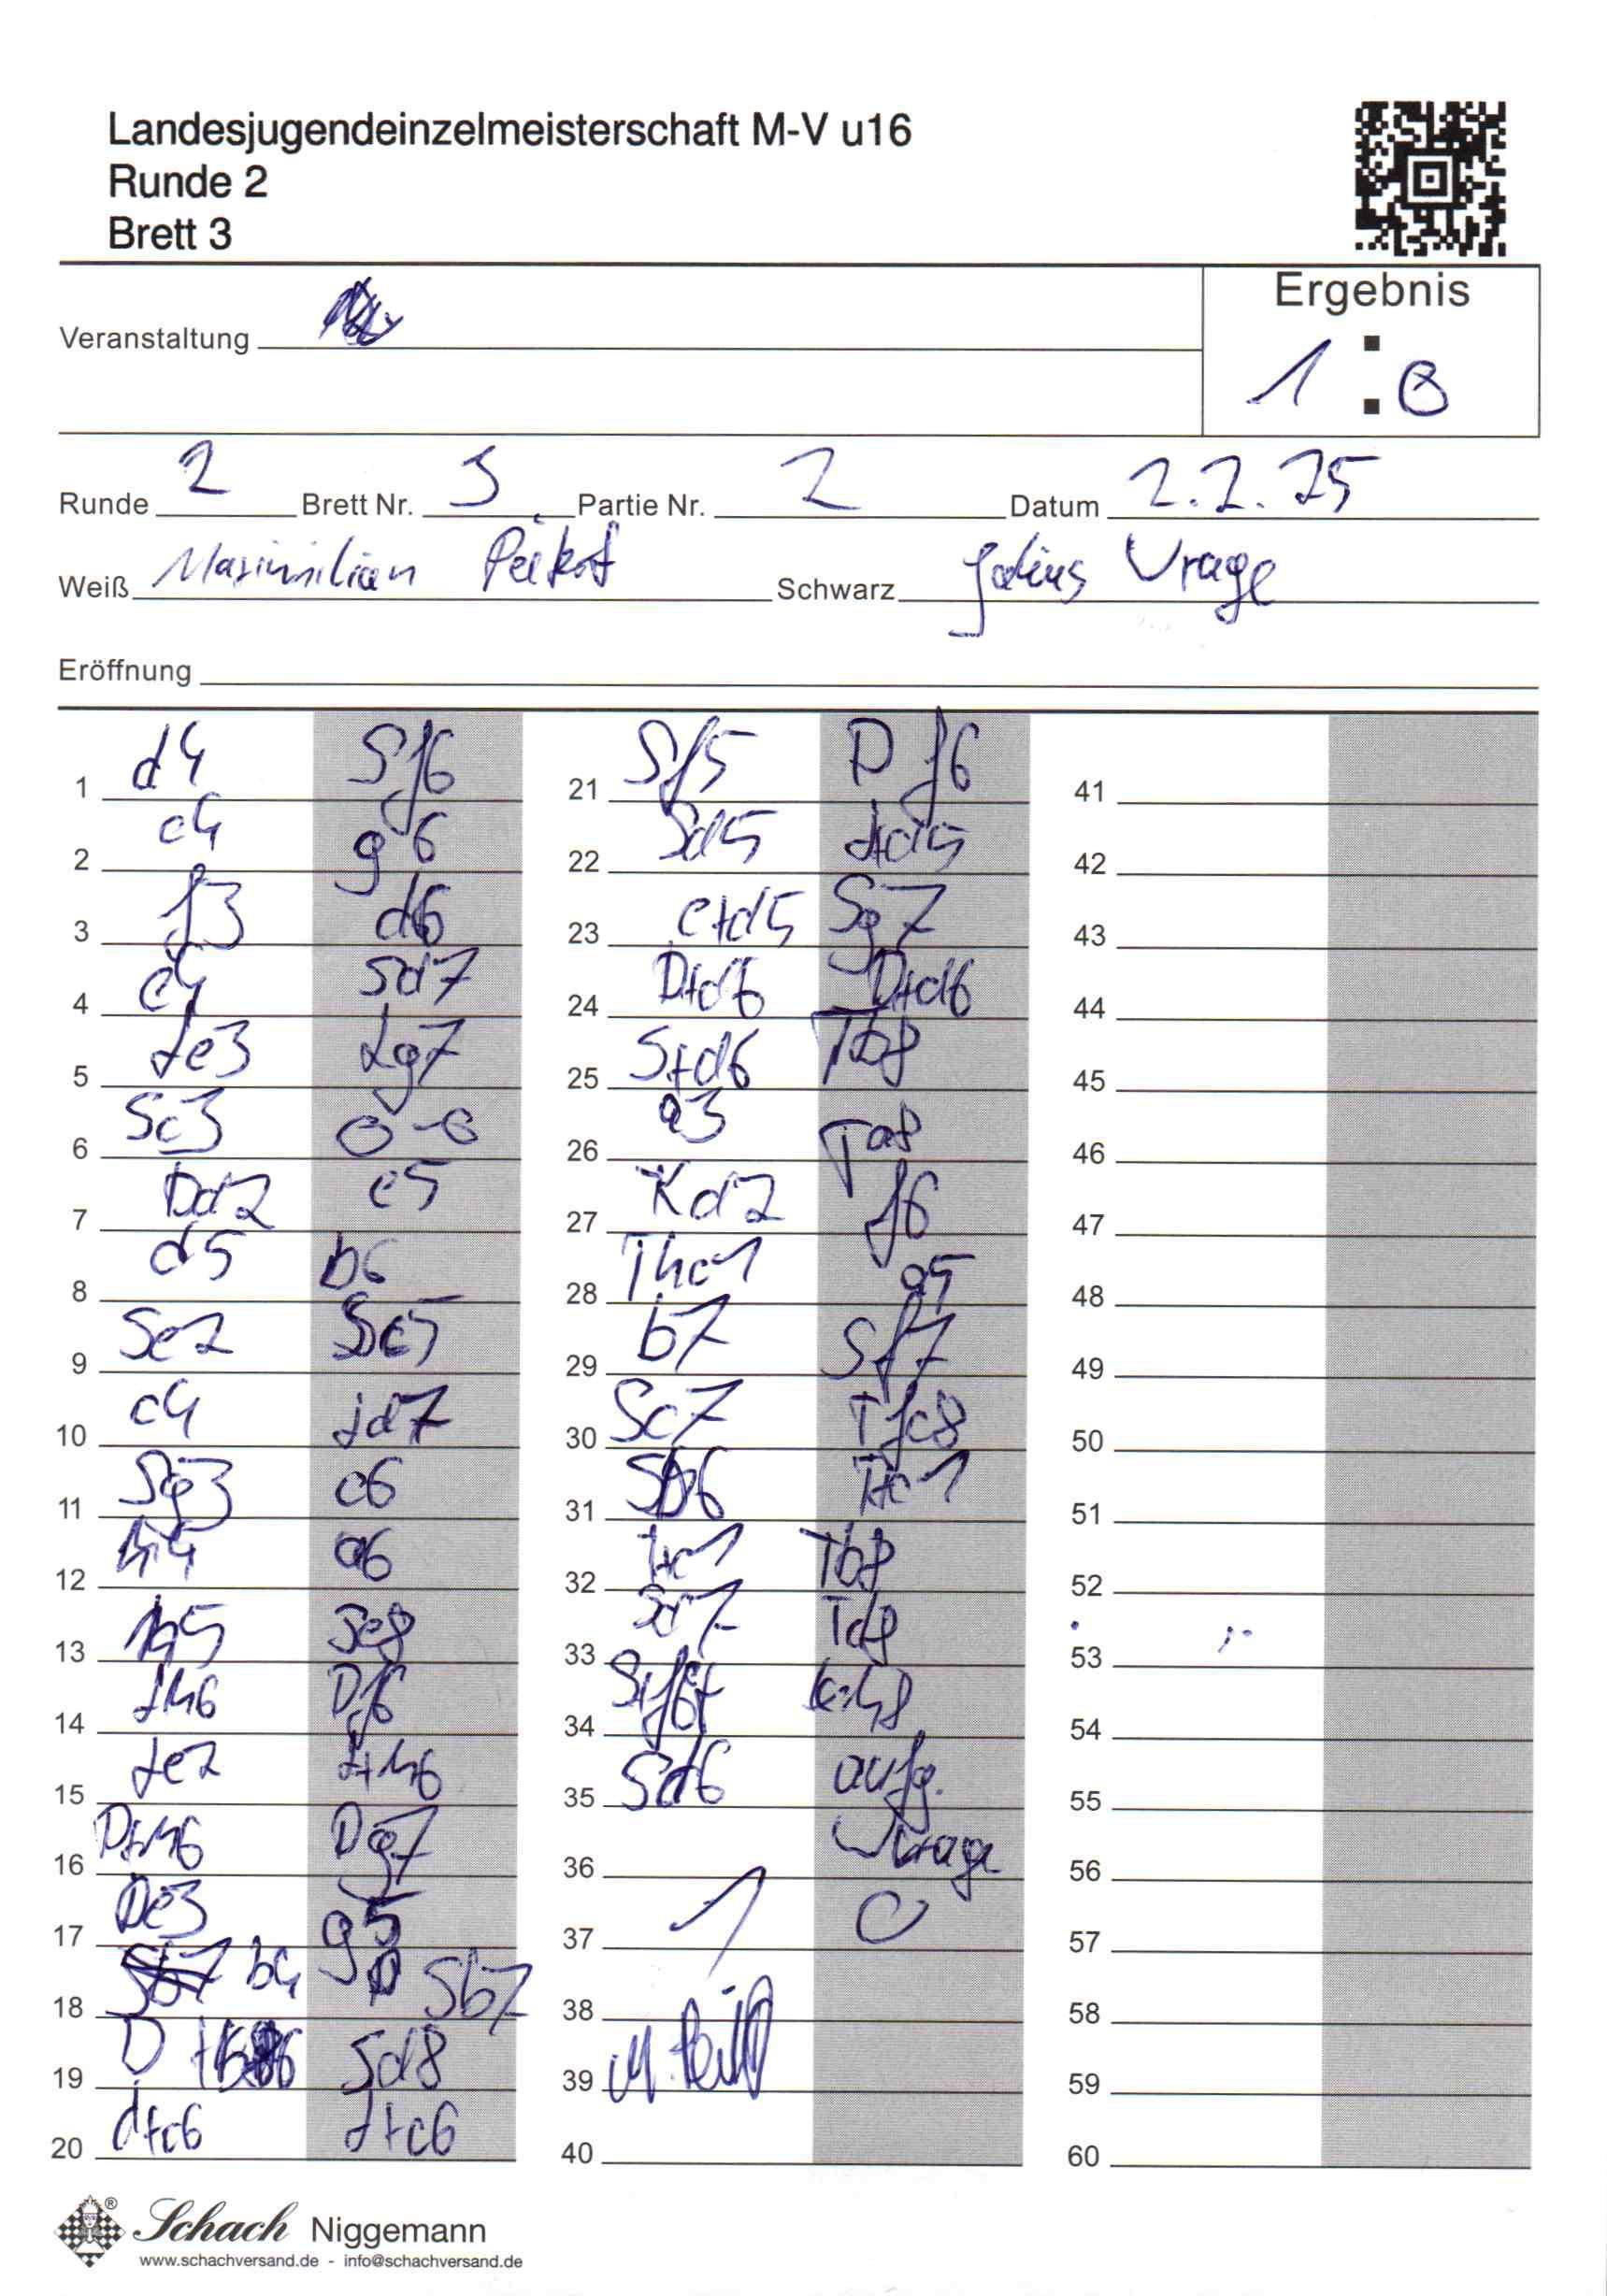 Landesjugendeinzelmeisterschaft M-V u16
Runde 2
Brett 3
Ergebnis
Veranstaltung
1 : 0
Runde 2 Brett Nr. 3 Partie Nr. 2 Datum 2.2.25
Weiß Maximilian Schwarz Julius Vrage
Eröffnung
1 d4 Sf6
2 c4 g6
3 f3 d6
4 e4 Sd7
5 Le3 Lg7
6 Sc3 0-0
7 Dd2 e5
8 d5 b6
9 Se2 Sc5
10 c4 Ld7
11 Sg3 c6
12 h4 a6
13 h5 Se8
14 Lh6 Df6
15 Le2 L+h6
16 D+h6 Dg7
17 De3 g5
18 b4 Sb7
19 D+b6 Sd8
20 d+c6 L+c6
21 Sf5 Df6
22 Sd5 L+d5
23 c+d5 Sg7
24 D+d6 D+d6
25 S+d6 Tb8
26 a3 Ta8
27 Kd2 f6
28 Thc1 a5
29 b7 Sf7
30 Sc7 Tfc8
31 Sb6 T+c1
32 T+c1 Tb8
33 Sd7 Td8
34 S+f6+ Kh8
35 Sd6 aufg.
36 Vrage
37 1 0
38
39
40
41
42
43
44
45
46
47
48
49
50
51
52
53
54
55
56
57
58
59
60
Schach Niggemann
www.schachversand.de - info@schachversand.de